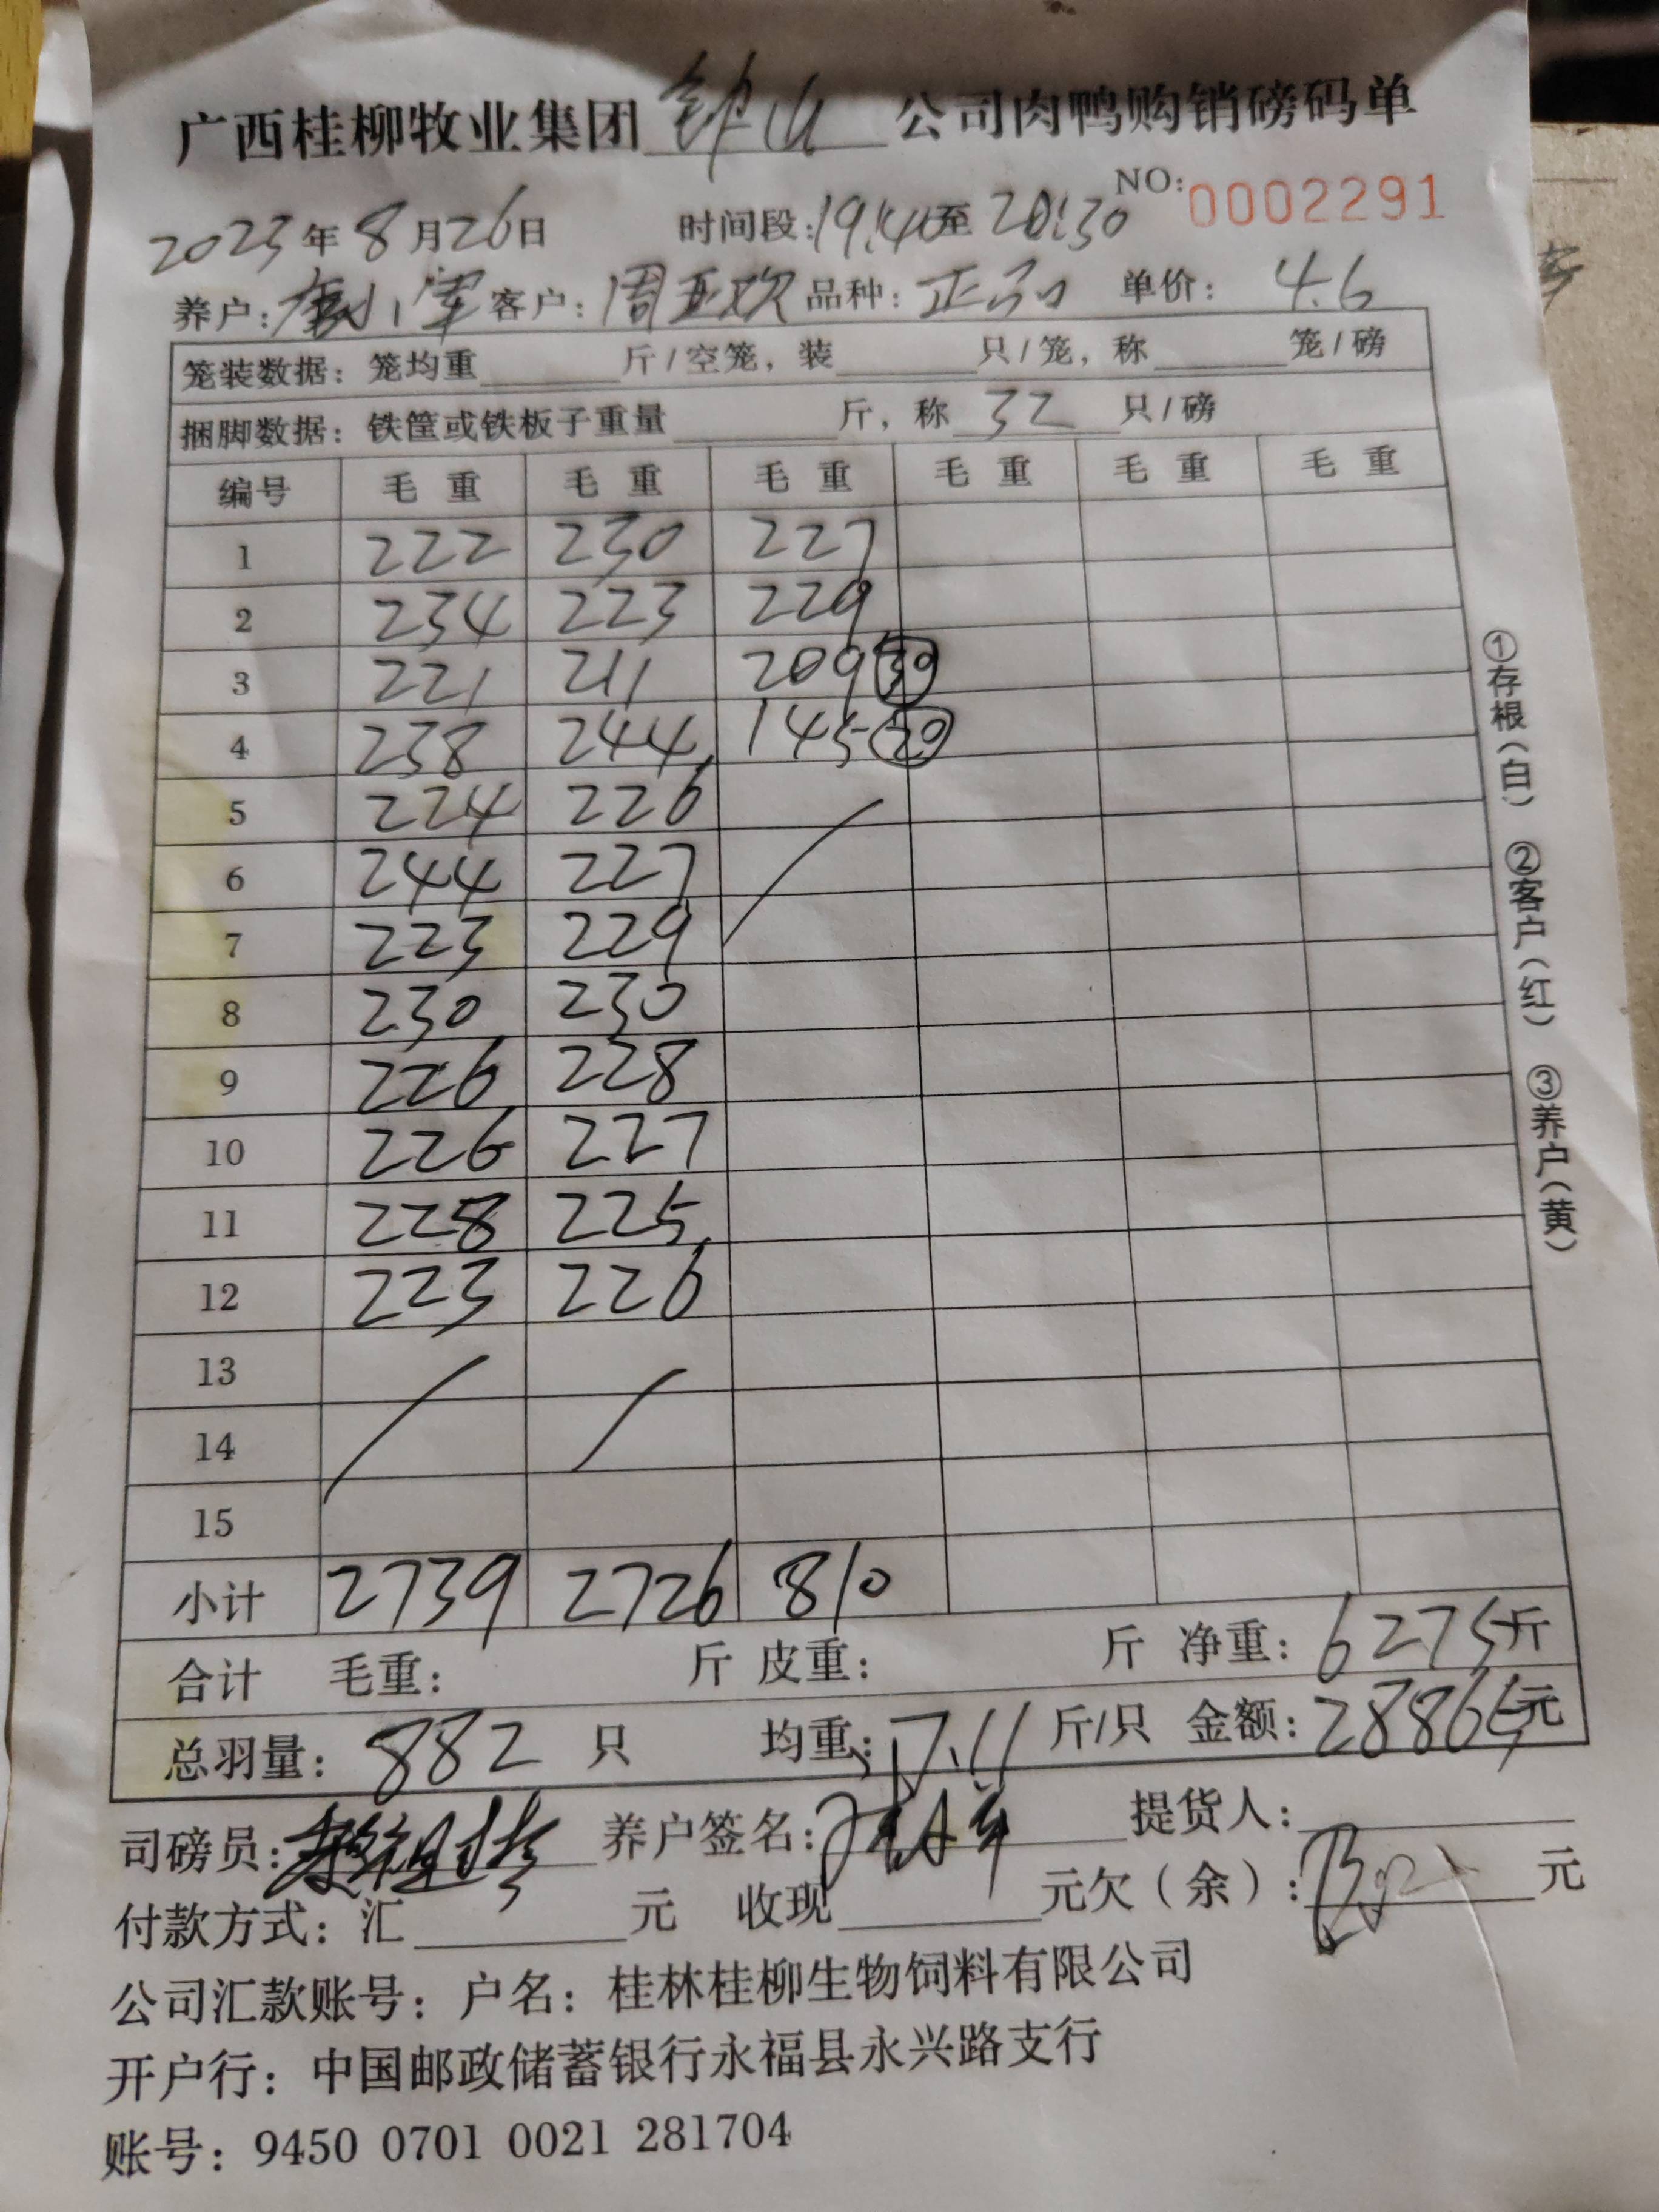 广西桂柳牧业集团 钟山 公司肉鸭购销磅码单
NO: 0002291
2023年8月26日 时间段:19:40至20:30
养户: 客户:周亚欢 品种:正品 单价: 4.6
笼装数据: 笼均重 斤/空笼, 装 只/笼, 称 笼/磅
捆脚数据: 铁筐或铁板子重量 斤, 称 32 只/磅
编号 毛重 毛重 毛重 毛重 毛重 毛重
1 222 230 227
2 234 223 229
3 221 211 209 30
4 238 244 145 20
5 224 226
6 244 227
7 223 229
8 230 230
9 226 228
10 226 227
11 228 225
12 223 226
13
14
15
小计 2739 2726 810
合计 毛重: 斤 皮重: 斤 净重: 6275斤
总羽量: 882 只 均重: 7.11 斤/只 金额: 28865元
司磅员: 养户签名: 提货人:
付款方式: 汇 元 收现 元欠(余): 元
公司汇款账号: 户名: 桂林桂柳生物饲料有限公司
开户行: 中国邮政储蓄银行永福县永兴路支行
账号: 9450 0701 0021 281704
①存根(白) ②客户(红) ③养户(黄)